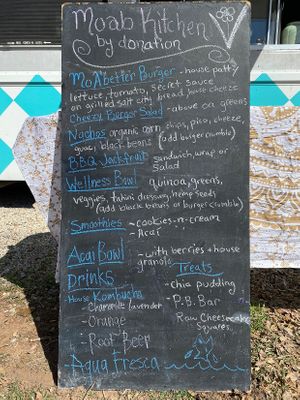 Moab Kitchen
by donation
MoAbetter Burger - house patty
lettuce, tomato, secret sauce
on grilled salt city bread, house cheeze
Cheezy Burger Salad - above on greens
Nachos organic corn chips, pico, cheeze,
guac, black beans (add burger crumble)
BBQ Jackfruit sandwich, wrap or
Salad
Wellness Bowl quinoa, greens,
veggies, tahini dressing, hemp seeds
(add black beans or burger crumble)
Smoothies - cookies-n-cream
- Acai
Acai Bowl - with berries + house
granola
Drinks Treats
House Kombucha - chia pudding
- Chamomile/lavender - P.B. Bar
- Orange - Raw Cheesecake
Squares
- Root Beer
Agua Fresca